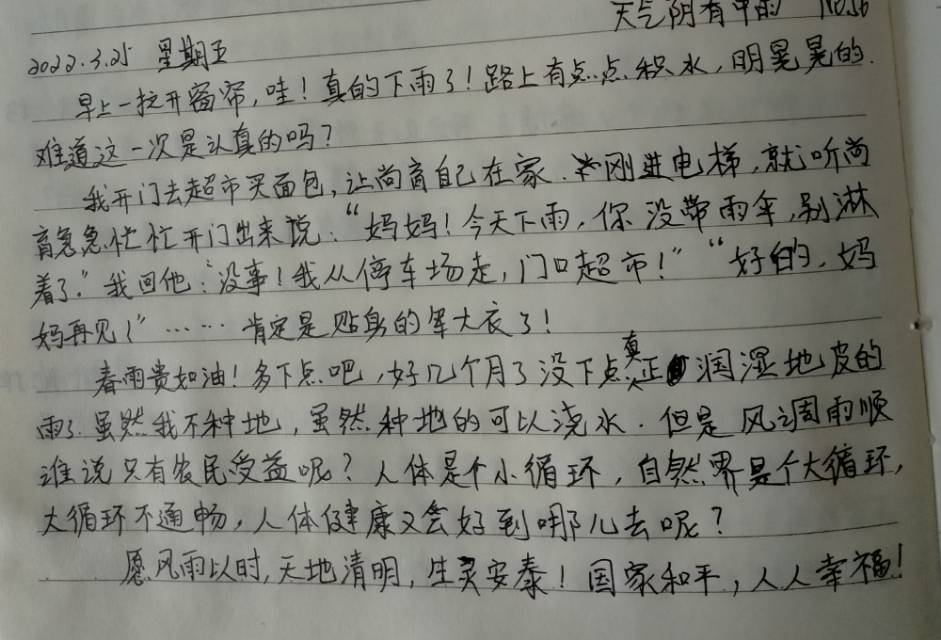 天气阴有中雨 No56
2022.3.25 星期五
早上一拉开窗帘,哇!真的下雨了!路上有点点积水,明晃晃的.
难道这一次是认真的吗?
我开门去超市买面包,让尚育自己在家.刚进电梯,就听尚
育急急忙忙开门出来说:“妈妈!今天下雨,你没带雨伞,别淋
着了。”我回他:“没事!我从停车场走,门口超市!”“好的,妈
妈再见!”……肯定是贴身的军大衣了!
春雨贵如油!多下点吧,好几个月了没下点真正润湿地皮的
雨了.虽然我不种地,虽然种地的可以浇水.但是风调雨顺
谁说只有农民受益呢?人体是个小循环,自然界是个大循环,
大循环不通畅,人体健康又会好到哪儿去呢?
愿风雨以时,天地清明,生灵安泰!国家和平,人人幸福!